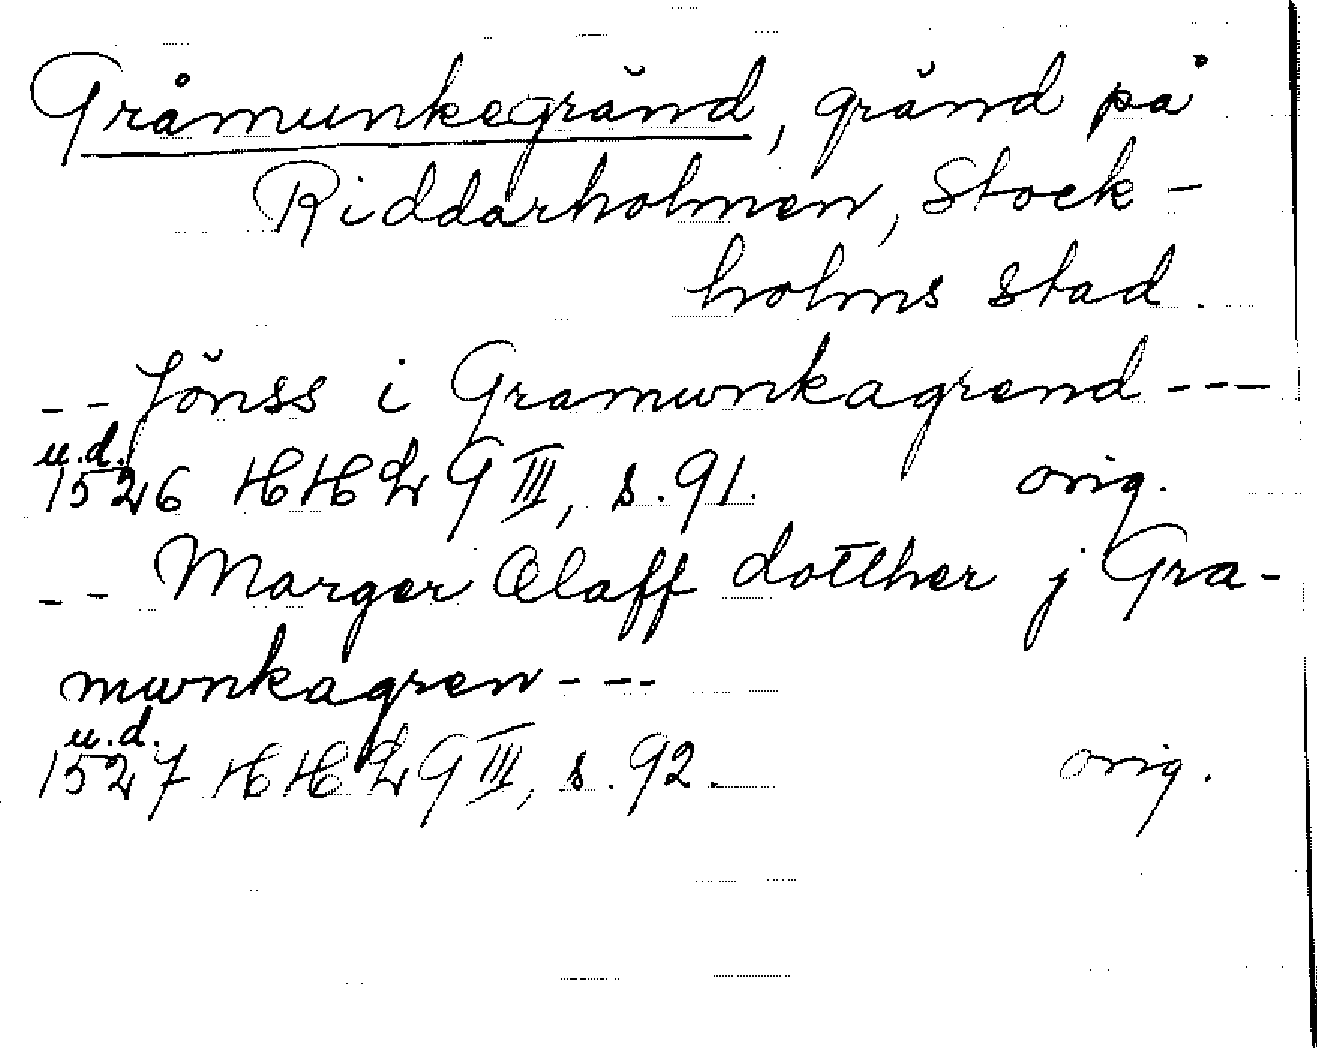 Gråmunkegränd, gränd på
Riddarholmen, Stock-
holms stad.
-- Jönss i Gramunkagrend ---
u.d.
1526 HHL 9 III, s. 91. orig.
-- Marger Olaff dotther j Gra-
munkagren ---
u.d.
1527 HHL 9 III, s. 92. orig.